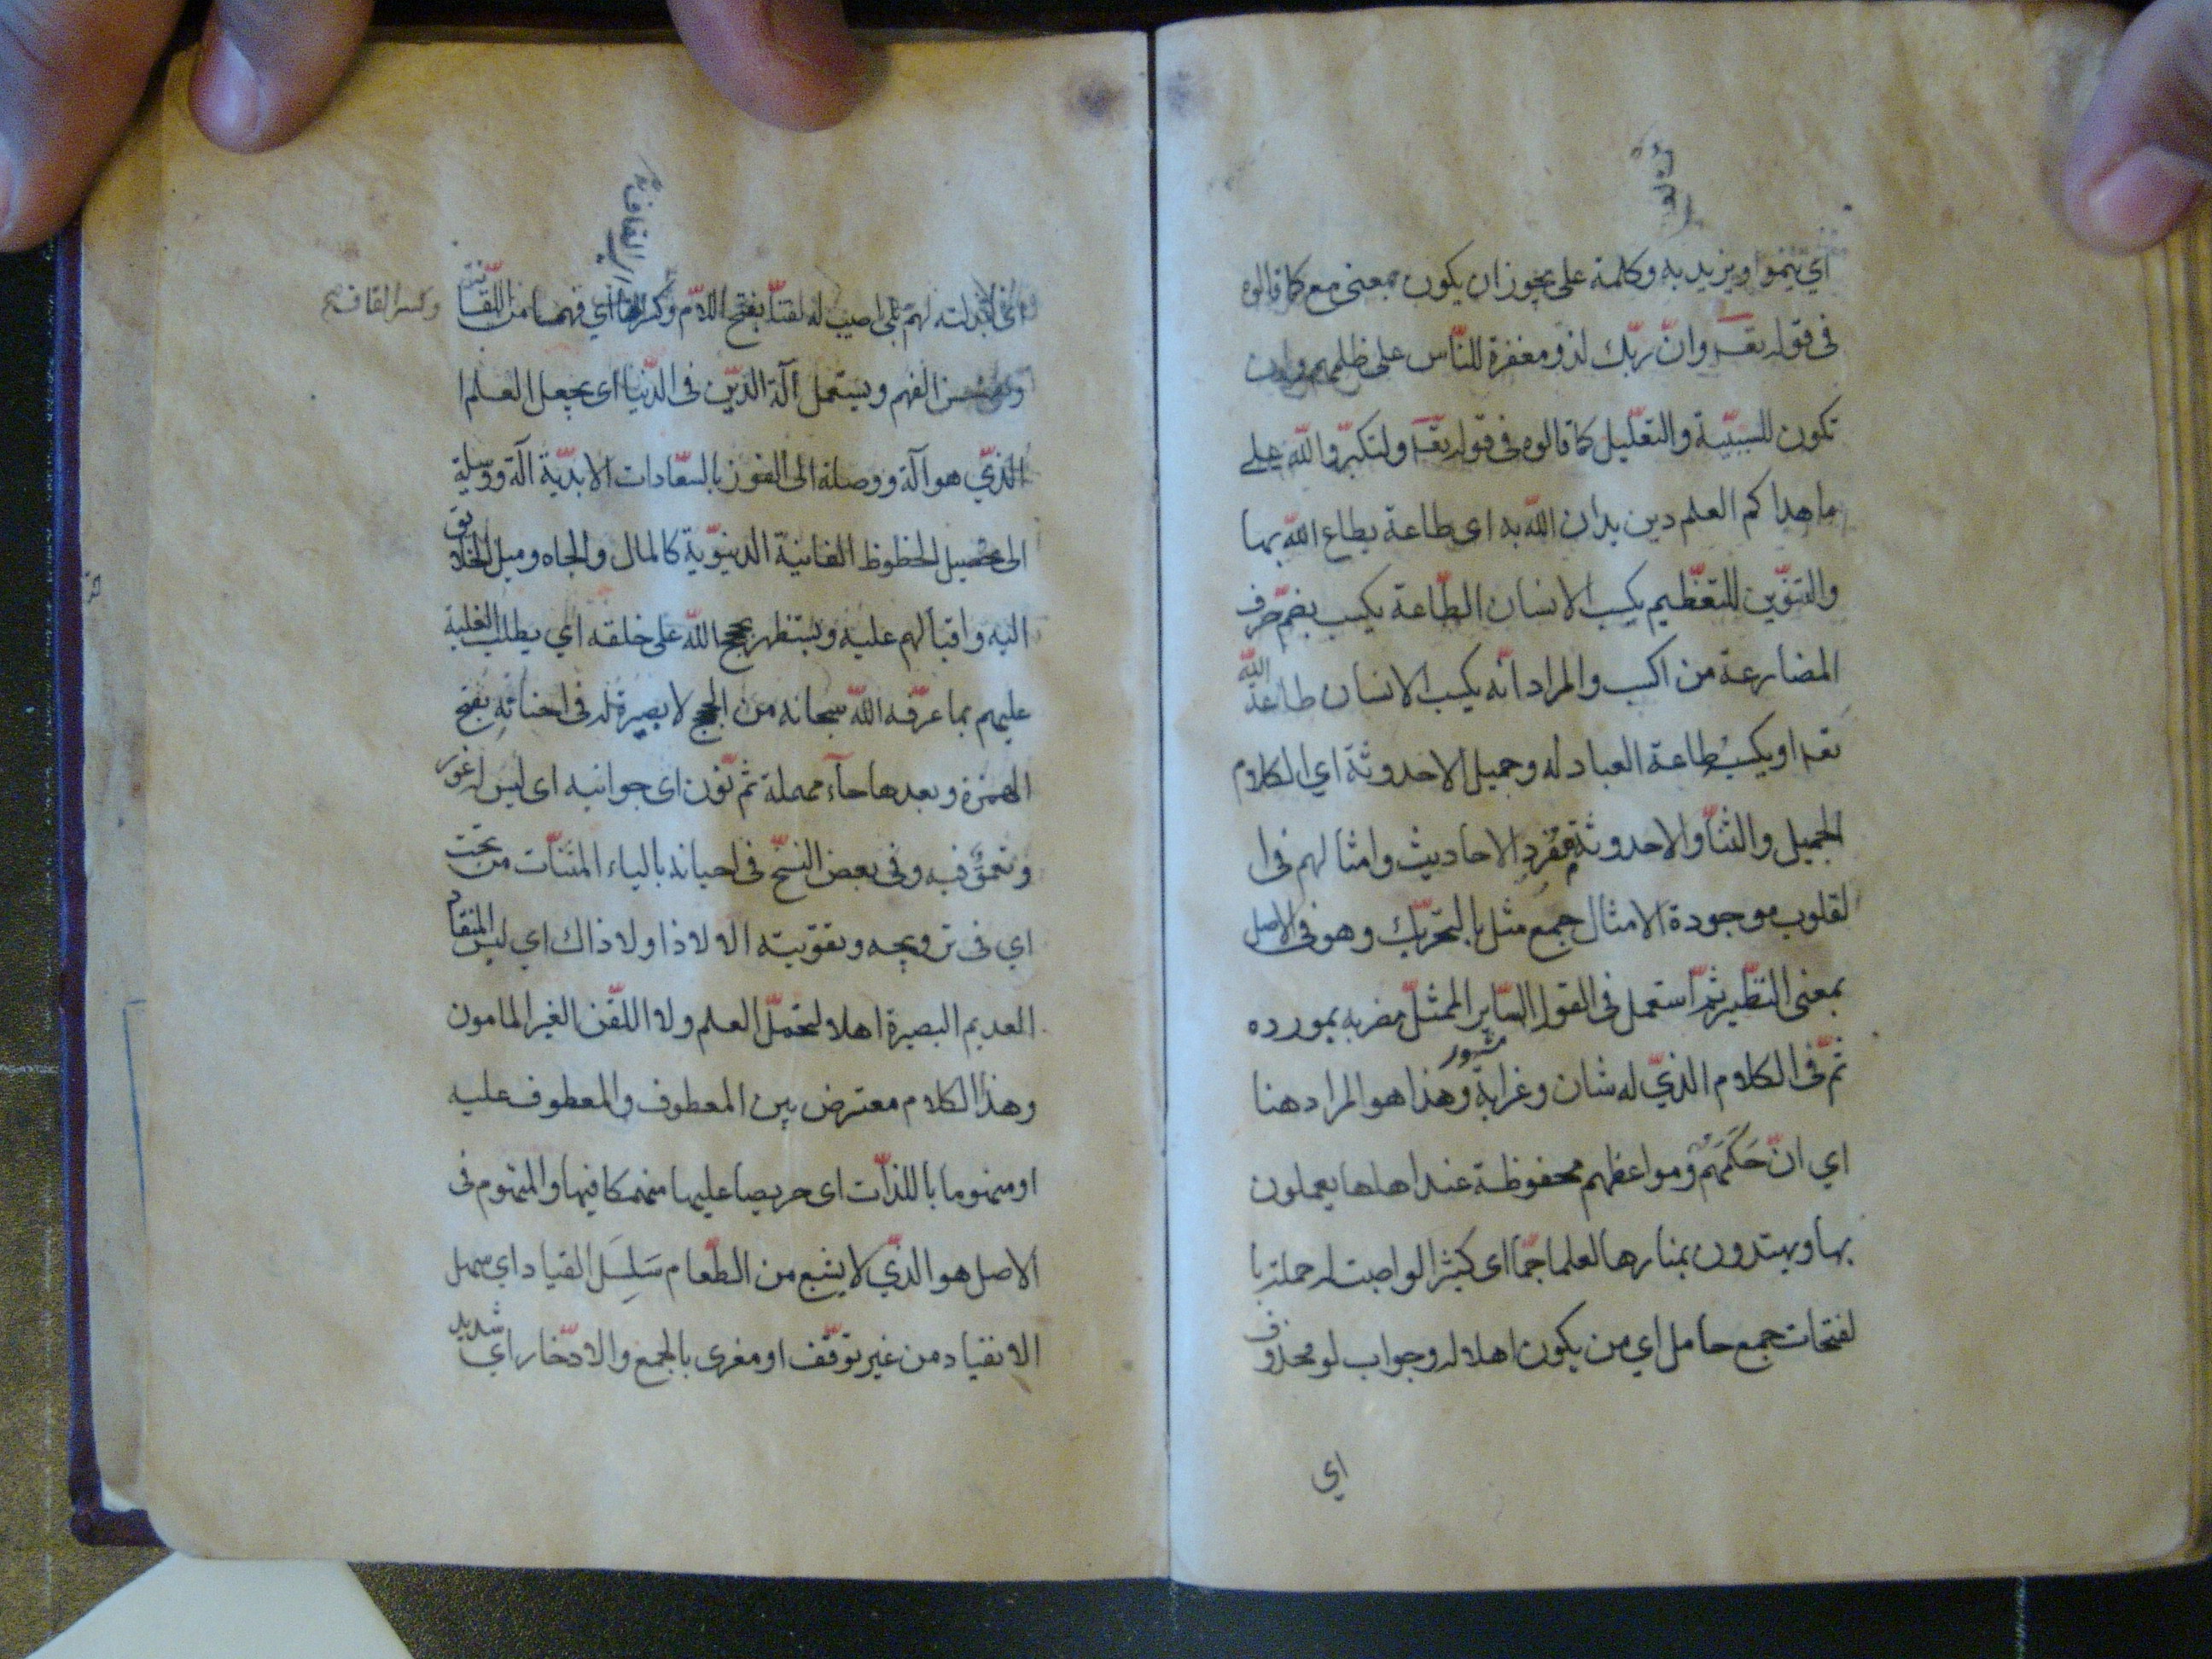 اي ينموا ويزيد به وكلمة على يجوز ان يكون بمعنى مع كما قالوه
فى قوله تعـ وانّ ربّك لذو مغفرة للنّاس على ظلمهم وان
تكون للسببيّة والتعّليل كما قالوه فى قوله تعـ ولتكبرّوا اللّه على
ما هداكم العلم دين يدان اللّه به اى طاعة يطاع اللّه بها
والتنوّين للتعظّيم يكسب الانسان الطّاعة يكسب بضمّ حرف
المضارعة من اكسب والمراد انّه يكسب الانسان طاعة اللّه
تعـ او يكسب طاعة العباد له وجميل الاحدوثة اي الكلام
الجميل والثنّاء والاحدوثة مفرد الاحاديث وامثالهم فى ا
لقلوب موجودة الامثال جمع مثل بالتحّريك وهو فى الاصل
بمعنى النظّير ثمّ استعمل فى القول السّاير الممثلّ مضربه بمورده
ثمّ فى الكلام الذيّ له شان وغرابة مشهور وهذا هو المراد هنا
اي انّ حكمهم ومواعظهم محفوظة عند اهلها يعملون
بها ويهتدون بمنارها لعلما جمّا اى كثيرا لو اصبت له حملة با
لفتحات جمع حامل اي من يكون اهلا له وجواب لو محذوف
اي
لبذلته لهم بلى اصيب له لقنا بفتح اللامّ وكسر القاف اي فهما من اللقّانة
وكسر القاف صح
وهى حسن الفهم ويستعمل آلة الديّن فى الدّنيا اى يجعل العلم ا
الذيّ هو آلة ووصلة الى الفوز بالسّعادات الابديّة آلة ووسيلة
الى تحصيل الحظوظ الفانية الدنيوّية كالمال والجاه وميل الخلايق
اليه واقبالهم عليه ويستظهر بحجج اللّه على خلقه اي يطلب الغلبة
عليهم بما عرّفه اللّه سبحانه من الحجج لا بصيرة له فى احنائه بفتح
الهمزة وبعدها حآء مهملة ثمّ نوّن اى جوانبه اى ليس له غور
وتعمّق فيه وفى بعض النسخّ فى احيانه بالياء المثنّات من تحت
اي فى ترويجه وتقويته الا لا ذا ولا ذاك اي ليس المنقاد
العديم البصيرة اهلا لتحملّ العلم ولا اللقّن الغير المامون
وهذا الكلام معترض بين المعطوف والمعطوف عليه
او منهوما باللذّات اى حريصا عليها منهمكا فيها والمنهوم فى
الاصل هو الذيّ لا يشبع من الطّعام سَلِسَل القياد اي سهل
الانقياد من غير توقّف او مغرى بالجمع والادّخار اي شديد